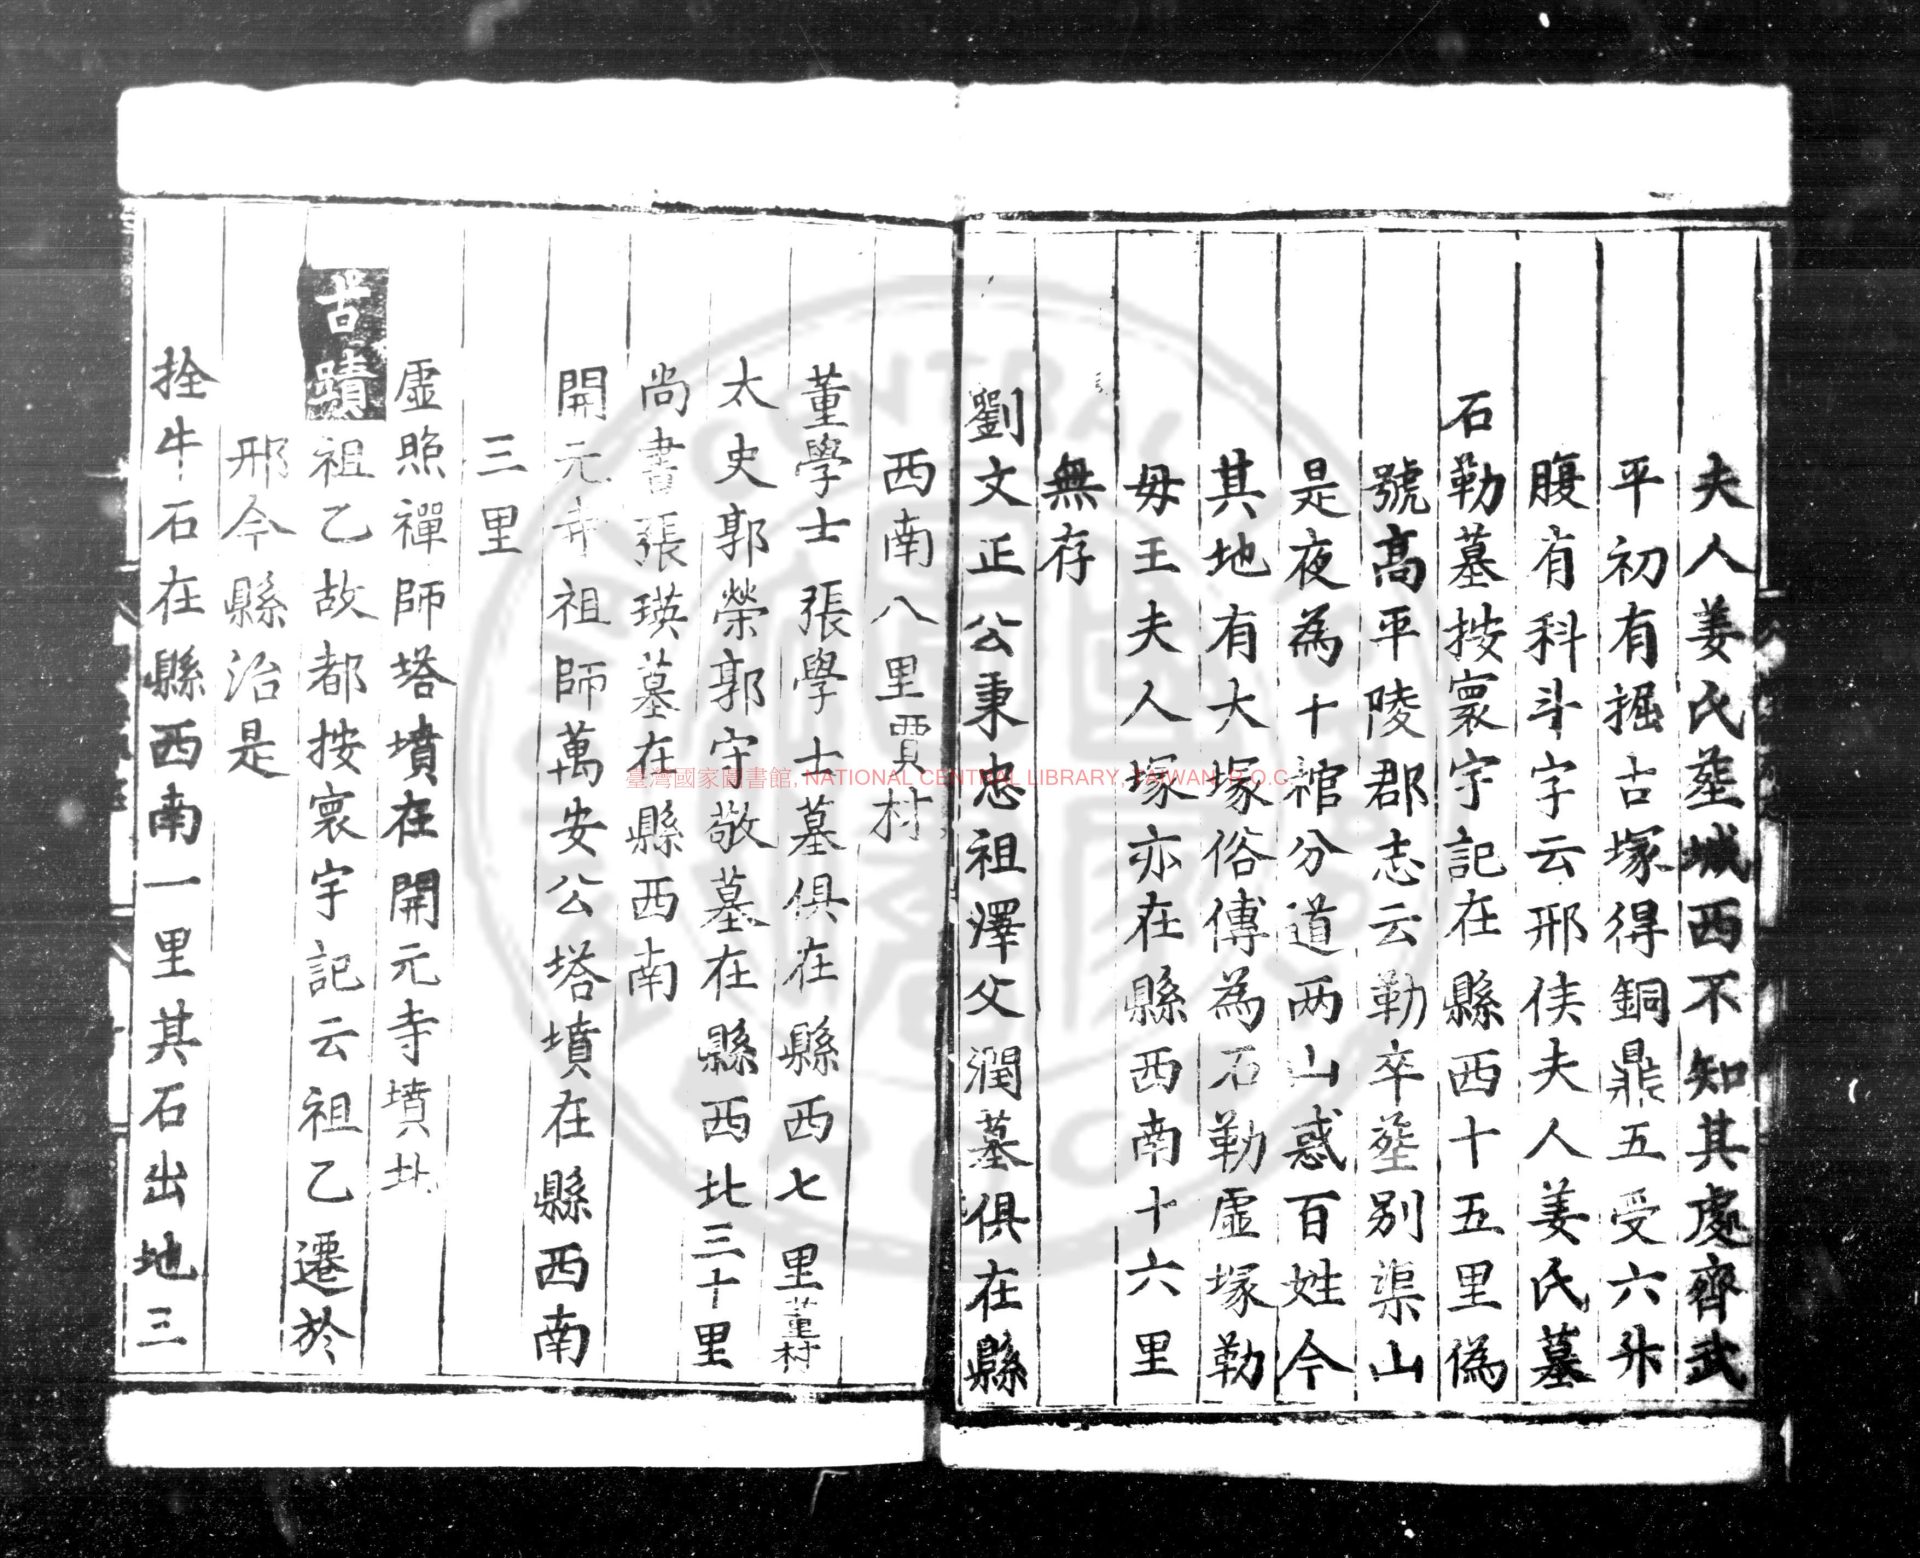 夫人姜氏葬城西不知其處齊武
平初有掘古塚得銅鼎五受六升
腹有科斗字云邢侯夫人姜氏墓
石勒墓按寰宇記在縣西十五里偽
號高平陵郡志云勒卒葬别渠山
是夜為十棺分道两山惑百姓今
其地有大塚俗傳為石勒虛塚勒
毋王夫人塚亦在縣西南十六里
無存
劉文正公秉忠祖澤父潤墓俱在縣
西南八里賈村
董學士張學士墓俱在縣西七里董村
太史郭榮郭守敬墓在縣西北三十里
尚書張瑛墓在縣西南
開元寺祖師萬安公塔墳在縣西南
三里
虛照禪師塔墳在開元寺墳北
古蹟
祖乙故都按寰宇記云祖乙遷於
邢今縣治是
拴牛石在縣西南一里其石出地三
臺灣國家圖書館, NATIONAL CENTRAL LIBRARY, TAIWAN, R.O.C.